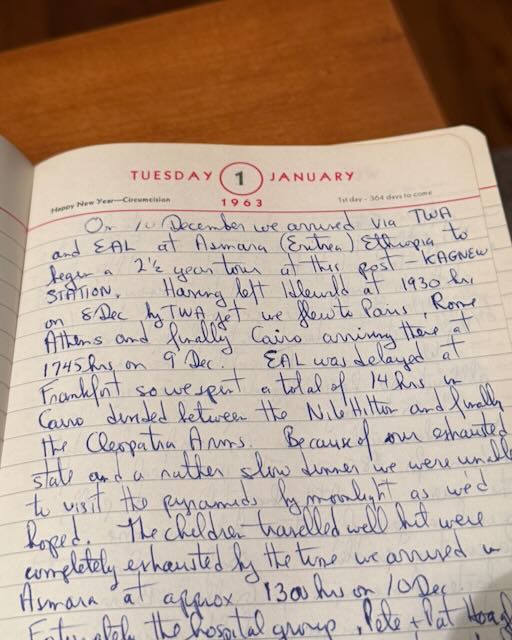 TUESDAY 1 JANUARY
Happy New Year—Circumcision 1963 1st day - 364 days to come
On 10 December we arrived via TWA
and EAL at Asmara (Eritrea) Ethiopia to
begin a 2½ year tour at this post - KAGNEW
STATION. Having left Idlewild at 1930 hrs
on 8 Dec by TWA jet we flew to Paris, Rome
Athens and finally Cairo arriving there at
1745 hrs on 9 Dec. EAL was delayed at
Frankfurt so we spent a total of 14 hrs in
Cairo divided between the Nile Hilton and finally
the Cleopatra Arms. Because of our exhausted
state and a rather slow dinner we were unable
to visit the pyramids by moonlight as we'd
hoped. The children travelled well but were
completely exhausted by the time we arrived in
Asmara at approx 1300 hrs on 10 Dec.
the hospital group, Pete + Pat